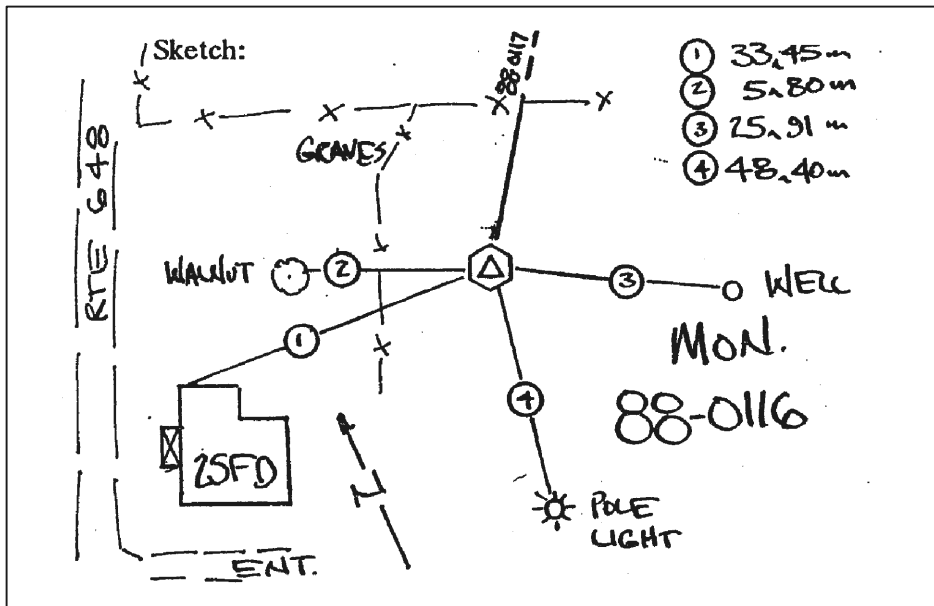 Sketch:
88-0117
① 33.45m
② 5.80m
③ 25.91m
④ 48.40m
RTE 648
GRAVES
WALNUT
②
③
WELL
①
MON.
④
88-0116
2SFD
N
POLE
LIGHT
ENT.